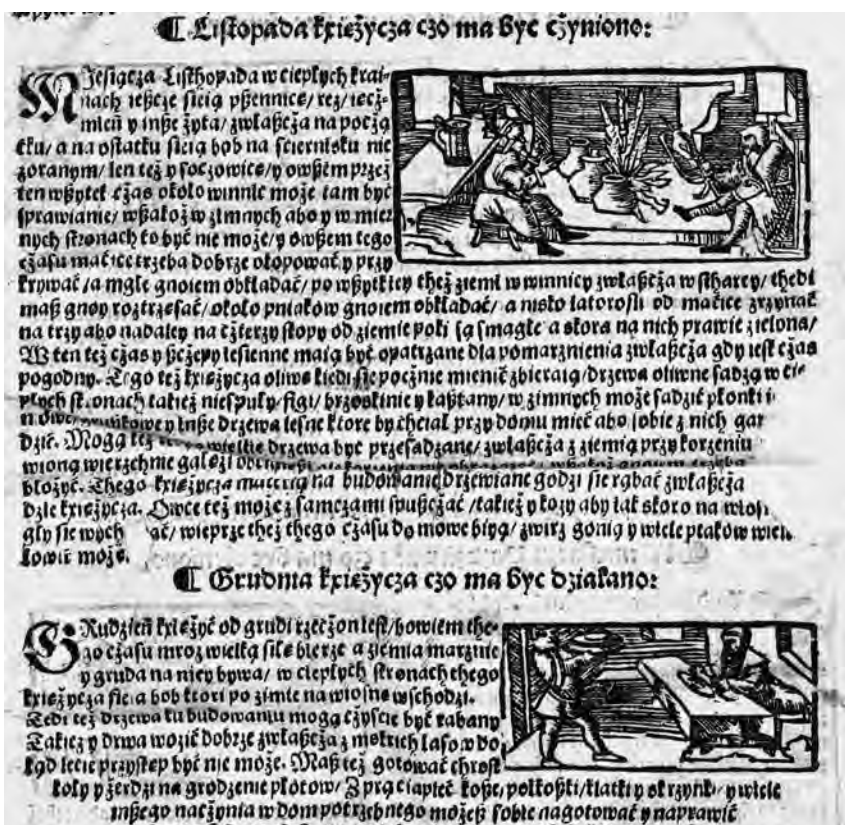 ¶ Listopada kxiężycza czo ma byc cżyniono:
MJesiącza Listhopada w ciepłych krai-
nach ießcże sieią pßennice/ reż/ iecż-
mień y inße żyta/ zwłaßcża na pocżą
tku/ a na ostatku sieią bob na sciernisku nie
zoranym/ len też y soczowice/ y owßem przez
ten wßytek cżas około winnic może tam być
sprawianie/ wßakoż w zimnych abo y w mier
nych stronach to być nie może/ y owßem tego
cżasu macice trzeba dobrze okopować y przy
krywać/ a mgłe gnoiem obkładać/ po wßytkiey theż ziemi w winnicy zwłaßcża w stharey/ thedi
maß gnoy roztrzesać/ około pniakow gnoiem obkładać/ a nisko latorosli od macice zrzynać
na trzy abo nadaley na cżterzy stopy od ziemie poki są smagłe a skora na nich prawie zielona/
W ten też cżas y ßcżepy lesienne maią być opatrzane dla pomarznienia zwłaßcża gdy iest cżas
pogodny. Tego też kxiężycza oliwe kiedi się pocżnie mienić zbieraią/ drzewa oliwne sadzą w cie-
płych stronach takież niespuły/ figi/ brzoskinie y kaßtany/ w zimnych może sadzić płonki i
y inße drzewa lesne ktore by chciał przy domu mieć abo sobie z nich gar
dzić. Mogą też wielkie drzewa być przesadzane/ zwłaßcża z ziemią przy korzeniu
wioną wierzchnie gałęzi
błożyć. Thego kxiężycza materią na budowanie drzewiane godzi sie rąbać zwłaßcża
dzie kxiężycza. Owce też możeß samczami spußcżać/ takież y kozy aby iak skoro na wiosn
gły sie wych ać/ wieprze theż thego cżasu domowe biyą/ zwirz gonią y wiele ptakow wien
łowić może.
¶ Grudnia kxiężycza czo ma byc działano:
GRudzień kxiężyć od grudi rzecżon iest/ bowiem the-
go cżasu mroz wielką siłę bierze a ziemia marznie
y gruda na niey bywa/ w ciepłych stronach thego
kxiężycza sieia bob ktori po zimie na wiosne wschodzi.
Tedi też drzewa ku budowaniu mogą cżyście być rąbany
Takież y drwa wozić dobrze zwłaßcża z mokrich lasow do
kąd lecie przystep być nie może. Maß też gotować chrost
koły y żerdzi na grodzenie płotow/ Z prącia pleć koße/ połkoßki/ klatki y skrzynki y wiele
inßego nacżynia w dom potrzebnego możeß sobie nagotować y naprawić